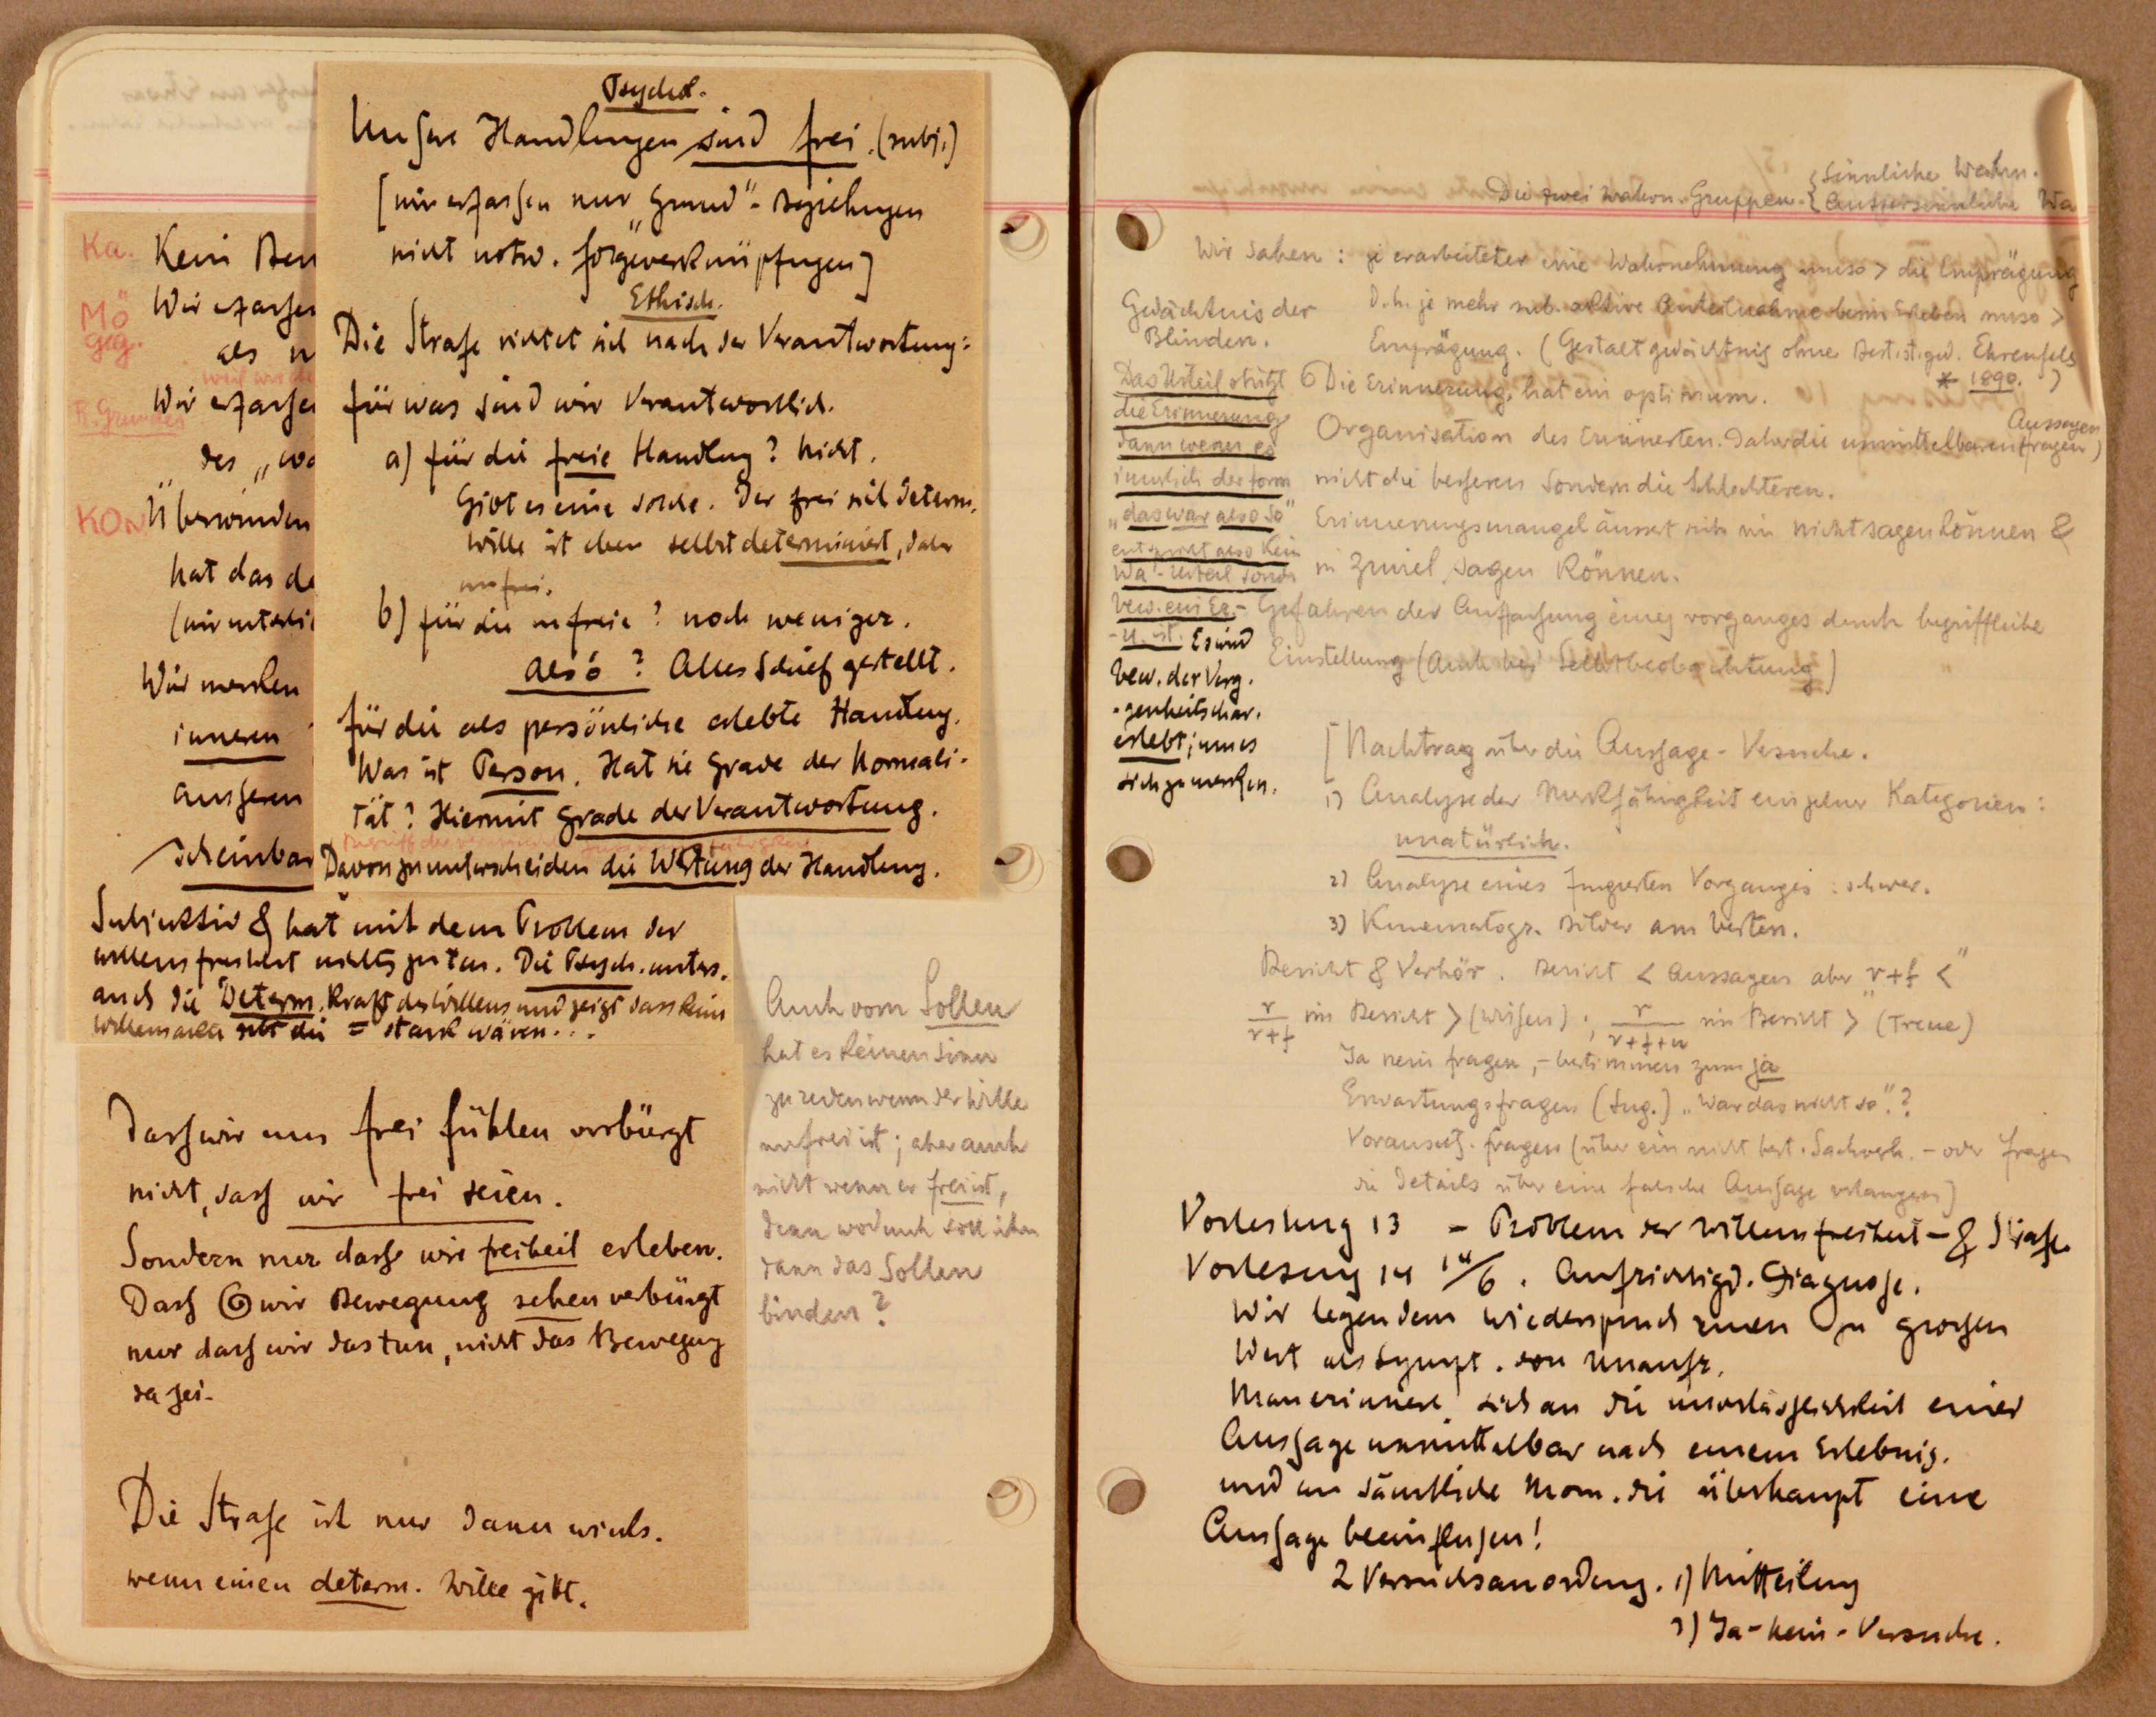 Psychol.
Unsere Handlungen sind frei. (subj.)
[wir erfassen nur „Grund"-Beziehungen
nicht notw. folgeverknüpfungen]
Ethisch.
Die Strafe richtet sich nach der Verantwortung:
für was sind wir Verantwortlich.
a) für die freie Handlung? nicht.
Gibt es eine solche. Der frei sich determ.
Wille ist eben selbst determiniert, daher
unfrei.
b) für die unfreie? noch weniger.
Also? Alles Schief gestellt.
für die als persönliche erlebte Handlung.
Was ist Person. Hat sie Grade der Normali-
tät? Hiermit Grade der Verantwortung.
Davon zu unterscheiden die Wertung der Handlung.
Ka.
Mö
geg.
R. Grundes
KON
Kein
Wir erfassen
als
Wir erfassen
des „
Überwinden
hat das
Wir merken
inneren
äusseren
scheinbar
Subjektiv & hat mit dem Problem der
willensfreiheit nichts zu tun. Die Psych. unters.
auch die Determ. Kraft des Willens und zeigt dass kein
die = stark wären...
Dass wir uns frei fühlen verbürgt
nicht, dass wir frei seien.
Sondern nur dass wir freiheit erleben.
Dass wir Bewegung sehen verbürgt
nur dass wir das tun, nicht das Bewegung
da sei.
Die Strafe ist nur dann wirks.
wenn einen determ. Wille gibt.
Auch vom Sollen
hat es keinen Sinn
zu reden wenn der Wille
unfrei ist; aber auch
nicht wenn er frei ist,
denn wodurch soll ihn
dann das Sollen
binden?
Die zwei wahrn. Gruppen. {Sinnliche Wahrn.
{Aussersinnliche Wa
Wir sahen: je erarbeiteter eine Wahrnehmung umso > die Einprägung
D.h. je mehr sub. aktive Anteilnahme beim Erleben umso >
Einprägung. (Gestaltgedächtnis ohne Ehrenfels
* 1890.)
Gedächtnis der
Blinden.
Das Urteil stützt
die Erinnerung
dann wenn es
innerlich der form
„das war also so"
entspricht also kein
Wa-Urteil sond.
bew. ein Er.-
u. ist. Es wird
bew. der Verg.
-genheitschar.
erlebt; um es
sich zu merken.
Die Erinnerung hat ein optimum.
Organisation des Erinnerten. Daher die unmittelbaren Aussagen
(fragen)
nicht die besseren Sondern die Schlechteren.
Erinnerungsmangel äussert sich im nicht sagen können &
in zuviel sagen Können.
Gefahren der Auffassung eines vorganges durch begriffliche
Einstellung (Auch bei Selbstbeobachtung)
[Nachtrag über die Aussage-Versuche.
1) Analyse der Merkfähigkeit einzelner Kategorien:
unatürlich.
2) Analyse eines fingierten Vorganges: schwer.
3) Kinematogr. Bilder am besten.
Bericht & Verhör. Bericht < Aussagen aber r+f <"
r/r+f im Bericht > (wissen); r/r+f+u im Bericht > (Treue)
Ja nein fragen, - bestimmen zum ja
Erwartungsfragen (Sug.) „War das nicht so"?
Voraussetz. fragen (über ein nicht best. Sachverh. - oder fragen
die Details über eine falsche Aussage verlangen)
Vorlesung 13 - Problem der Willensfreiheit - & Strafe
Vorlesung 14 14/6. Aufrichtigk. Diagnose.
Wir legen dem Wiederspruch einen zu grossen
Wert als Sympt. von Unaufr.
Man erinnere sich an die unverlässlichkeit einer
Aussage unmittelbar nach einem Erlebnis.
und an sämtliche Mom. die überhaupt eine
Aussage beeinflussen!
2 Versuchsanordnung. 1) Mitteilung
2) Ja-Nein-Versuche.